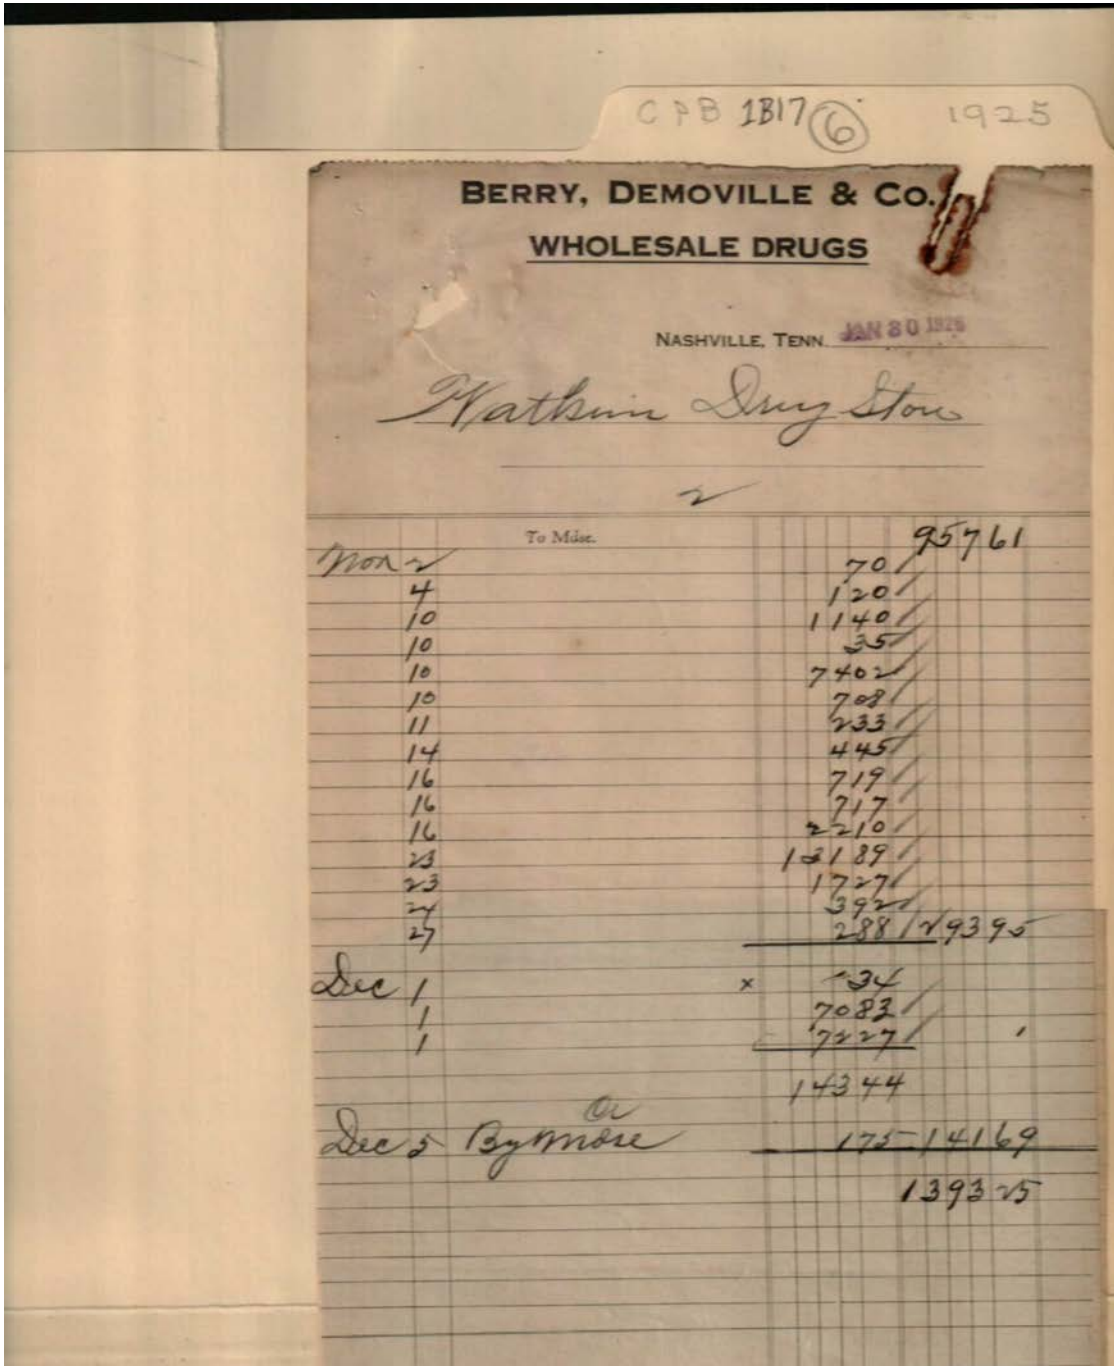 CPB 1B17 6 1925
BERRY, DEMOVILLE & CO.
WHOLESALE DRUGS
NASHVILLE, TENN. JAN 30 1926
Watkins Drug Store
2
To Mdse. 95761
Nov 2 70
4 120
10 1140
10 35
10 7402
10 708
11 233
14 445
16 719
16 717
16 2210
23 13189
23 1727
24 392
27 288 29395
Dec 1 x 34
1 7083
1 7227
14344
Cr
Dec 5 By Mdse 175 14169
139325